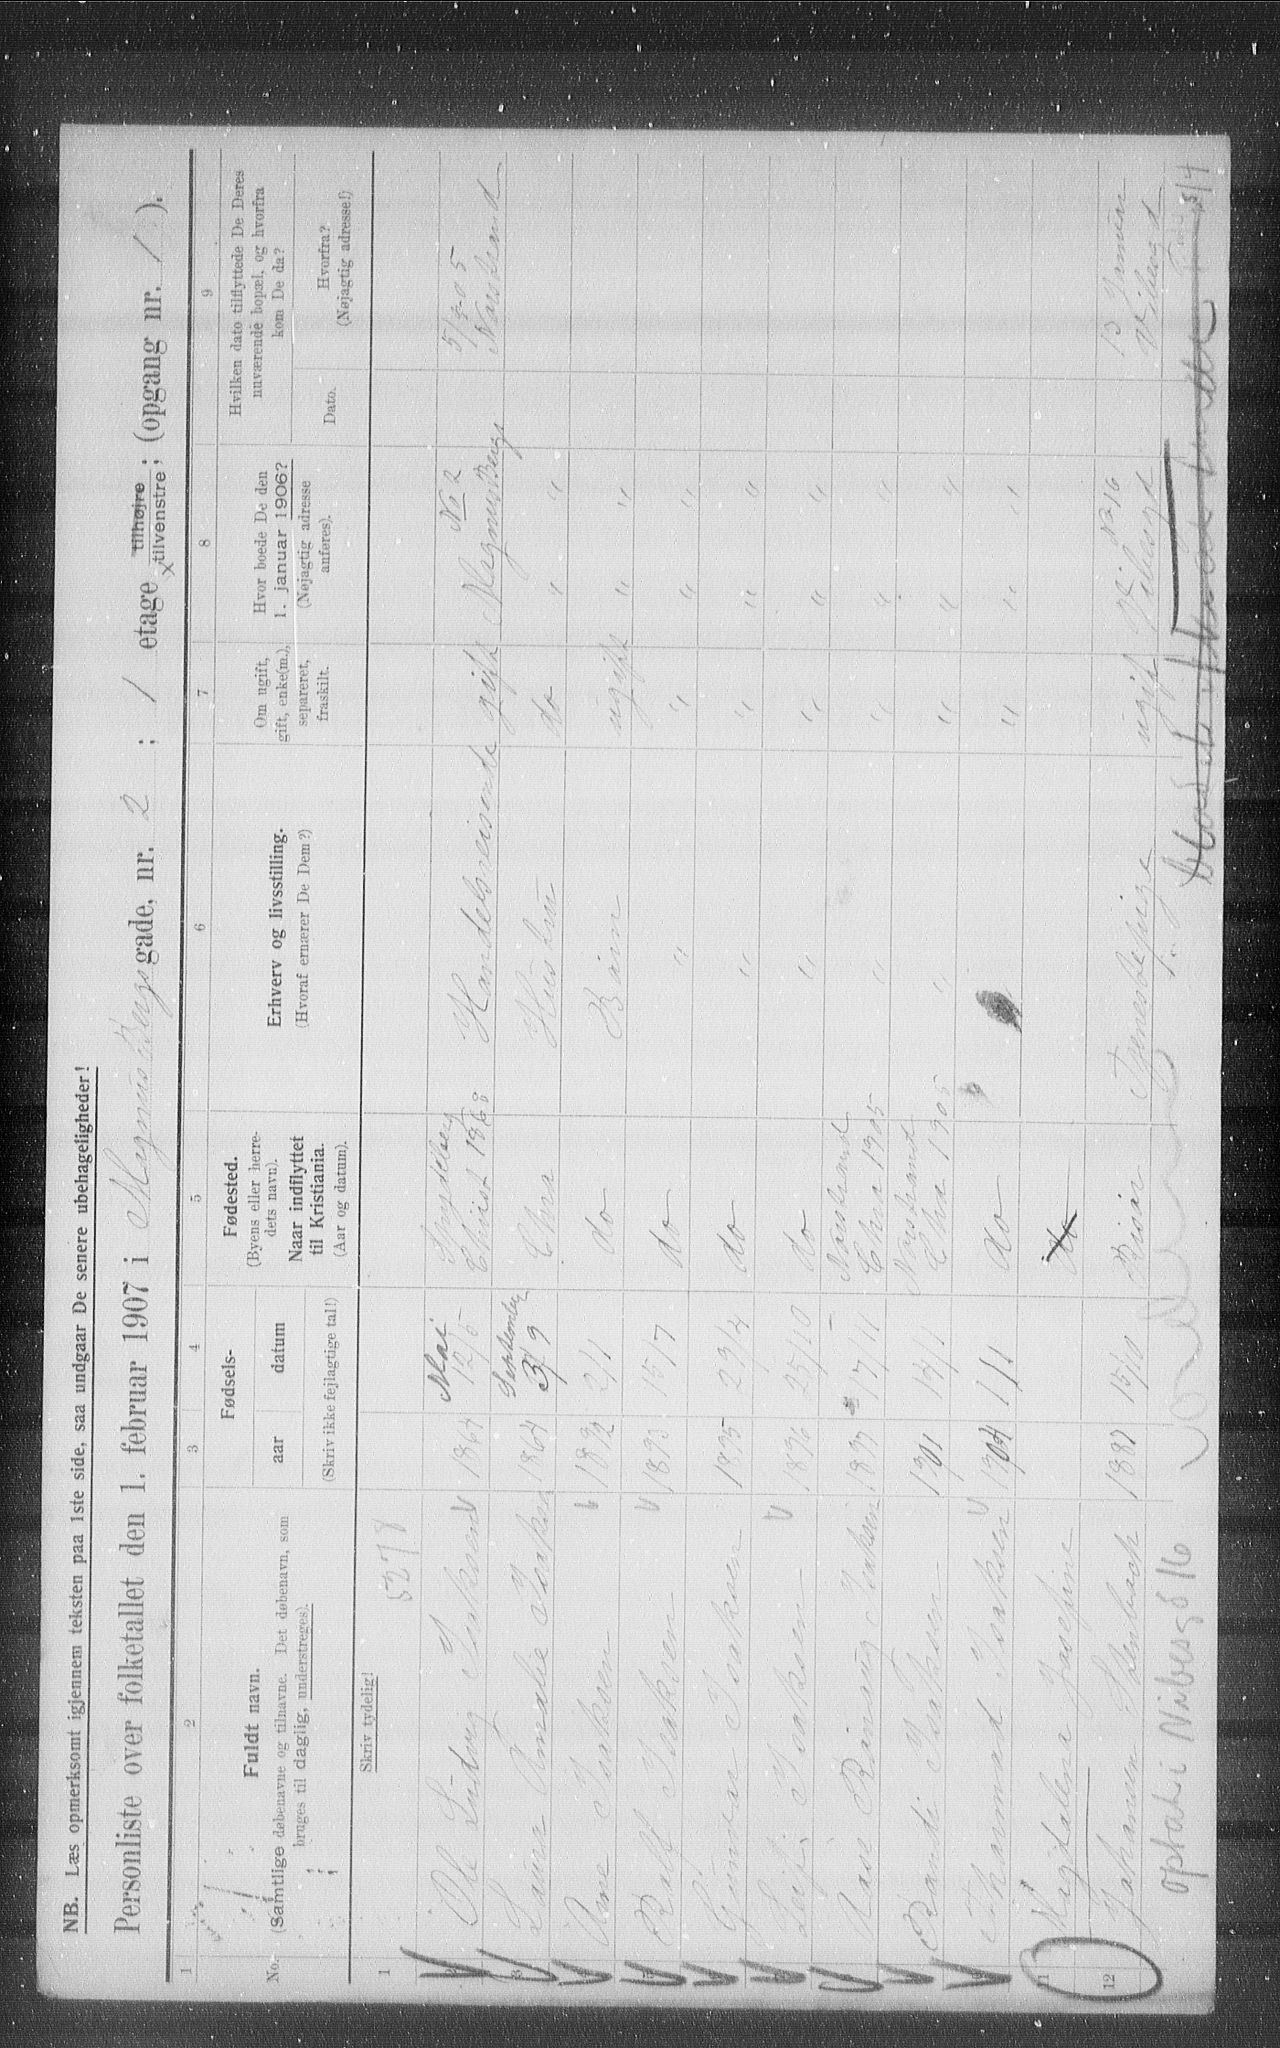 NB. Læs opmerksomt igjennem teksten paa 1ste side, saa undgaar De senere ubehageligheder!
Personliste over folketallet den 1. februar 1907 i Magnus Bergs gade, nr. 2 ; 1 etage tilhøjre x tilvenstre ; (opgang nr. 1 ).
1 2 3 4 5 6 7 8 9
No.
Fuldt navn.
(Samtlige døbenavne og tilnavne. Det døbenavn, som
bruges til daglig, understreges).
Fødsels-
aar datum
(Skriv ikke fejlagtige tal!)
Fødested.
(Byens eller herre-
dets navn).
Naar indflyttet
til Kristiania.
(Aar og datum).
Erhverv og livsstilling.
(Hvoraf ernærer De Dem?)
Om ugift,
gift, enke(m.),
separeret,
fraskilt.
Hvor boede De den
1. januar 1906?
(Nøjagtig adresse
anføres).
Hvilken dato tilflyttede De Deres
nuværende bopæl, og hvorfra
kom De da?
Dato.
Hvorfra?
(Nøjagtig adresse!)
Skriv tydelig!
1 5278
2 Ole Ludvig Isaksen 1864 Mai 12/5 Christ 1868 Handelsreisende gift No 2 Magnus Bergs Nordstrand
3 Laura Amalie Isaksen 1864 September 3/9 Chra Hustru do " "
Arne Isaksen 1892 2/1 do Barn ugift " "
Rolf Isaksen 1893 15/7 do " " " "
Gunvor Isaksen 1895 23/2 do " " " "
Leif Isaksen 1896 25/10 do " " " "
Isaksen 1897 17/11 Nordstrand Chra 1905 " " " "
Randi Isaksen 1901 19/1 Nordstrand Chra 1905 " " " "
Isaksen 1904 1/1 do " " "
11 Magdalena Josefine do
12 Johansen 1887 15/10 Tjenestepige ugift No 16 Vibesgd 13 Januar Vibesgd
optat i Vibesgd 16